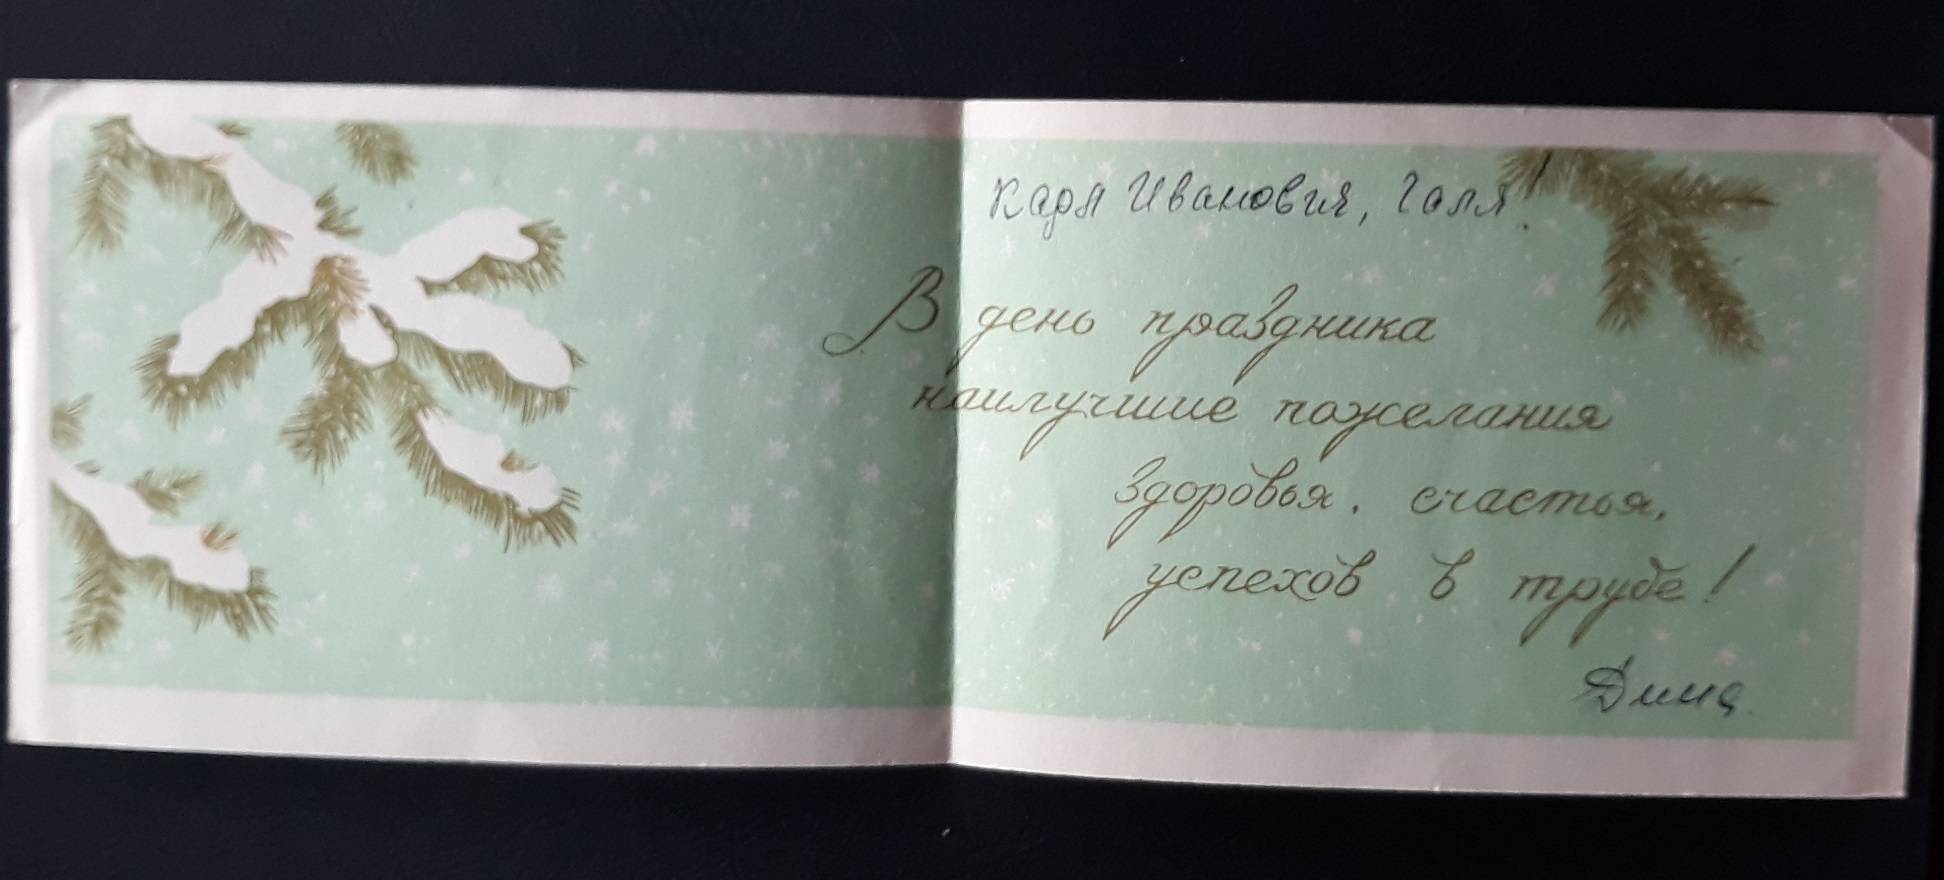 Карл Иванович, Галя!
В день праздника
наилучшие пожелания
здоровья, счастья,
успехов в труде!
Дима